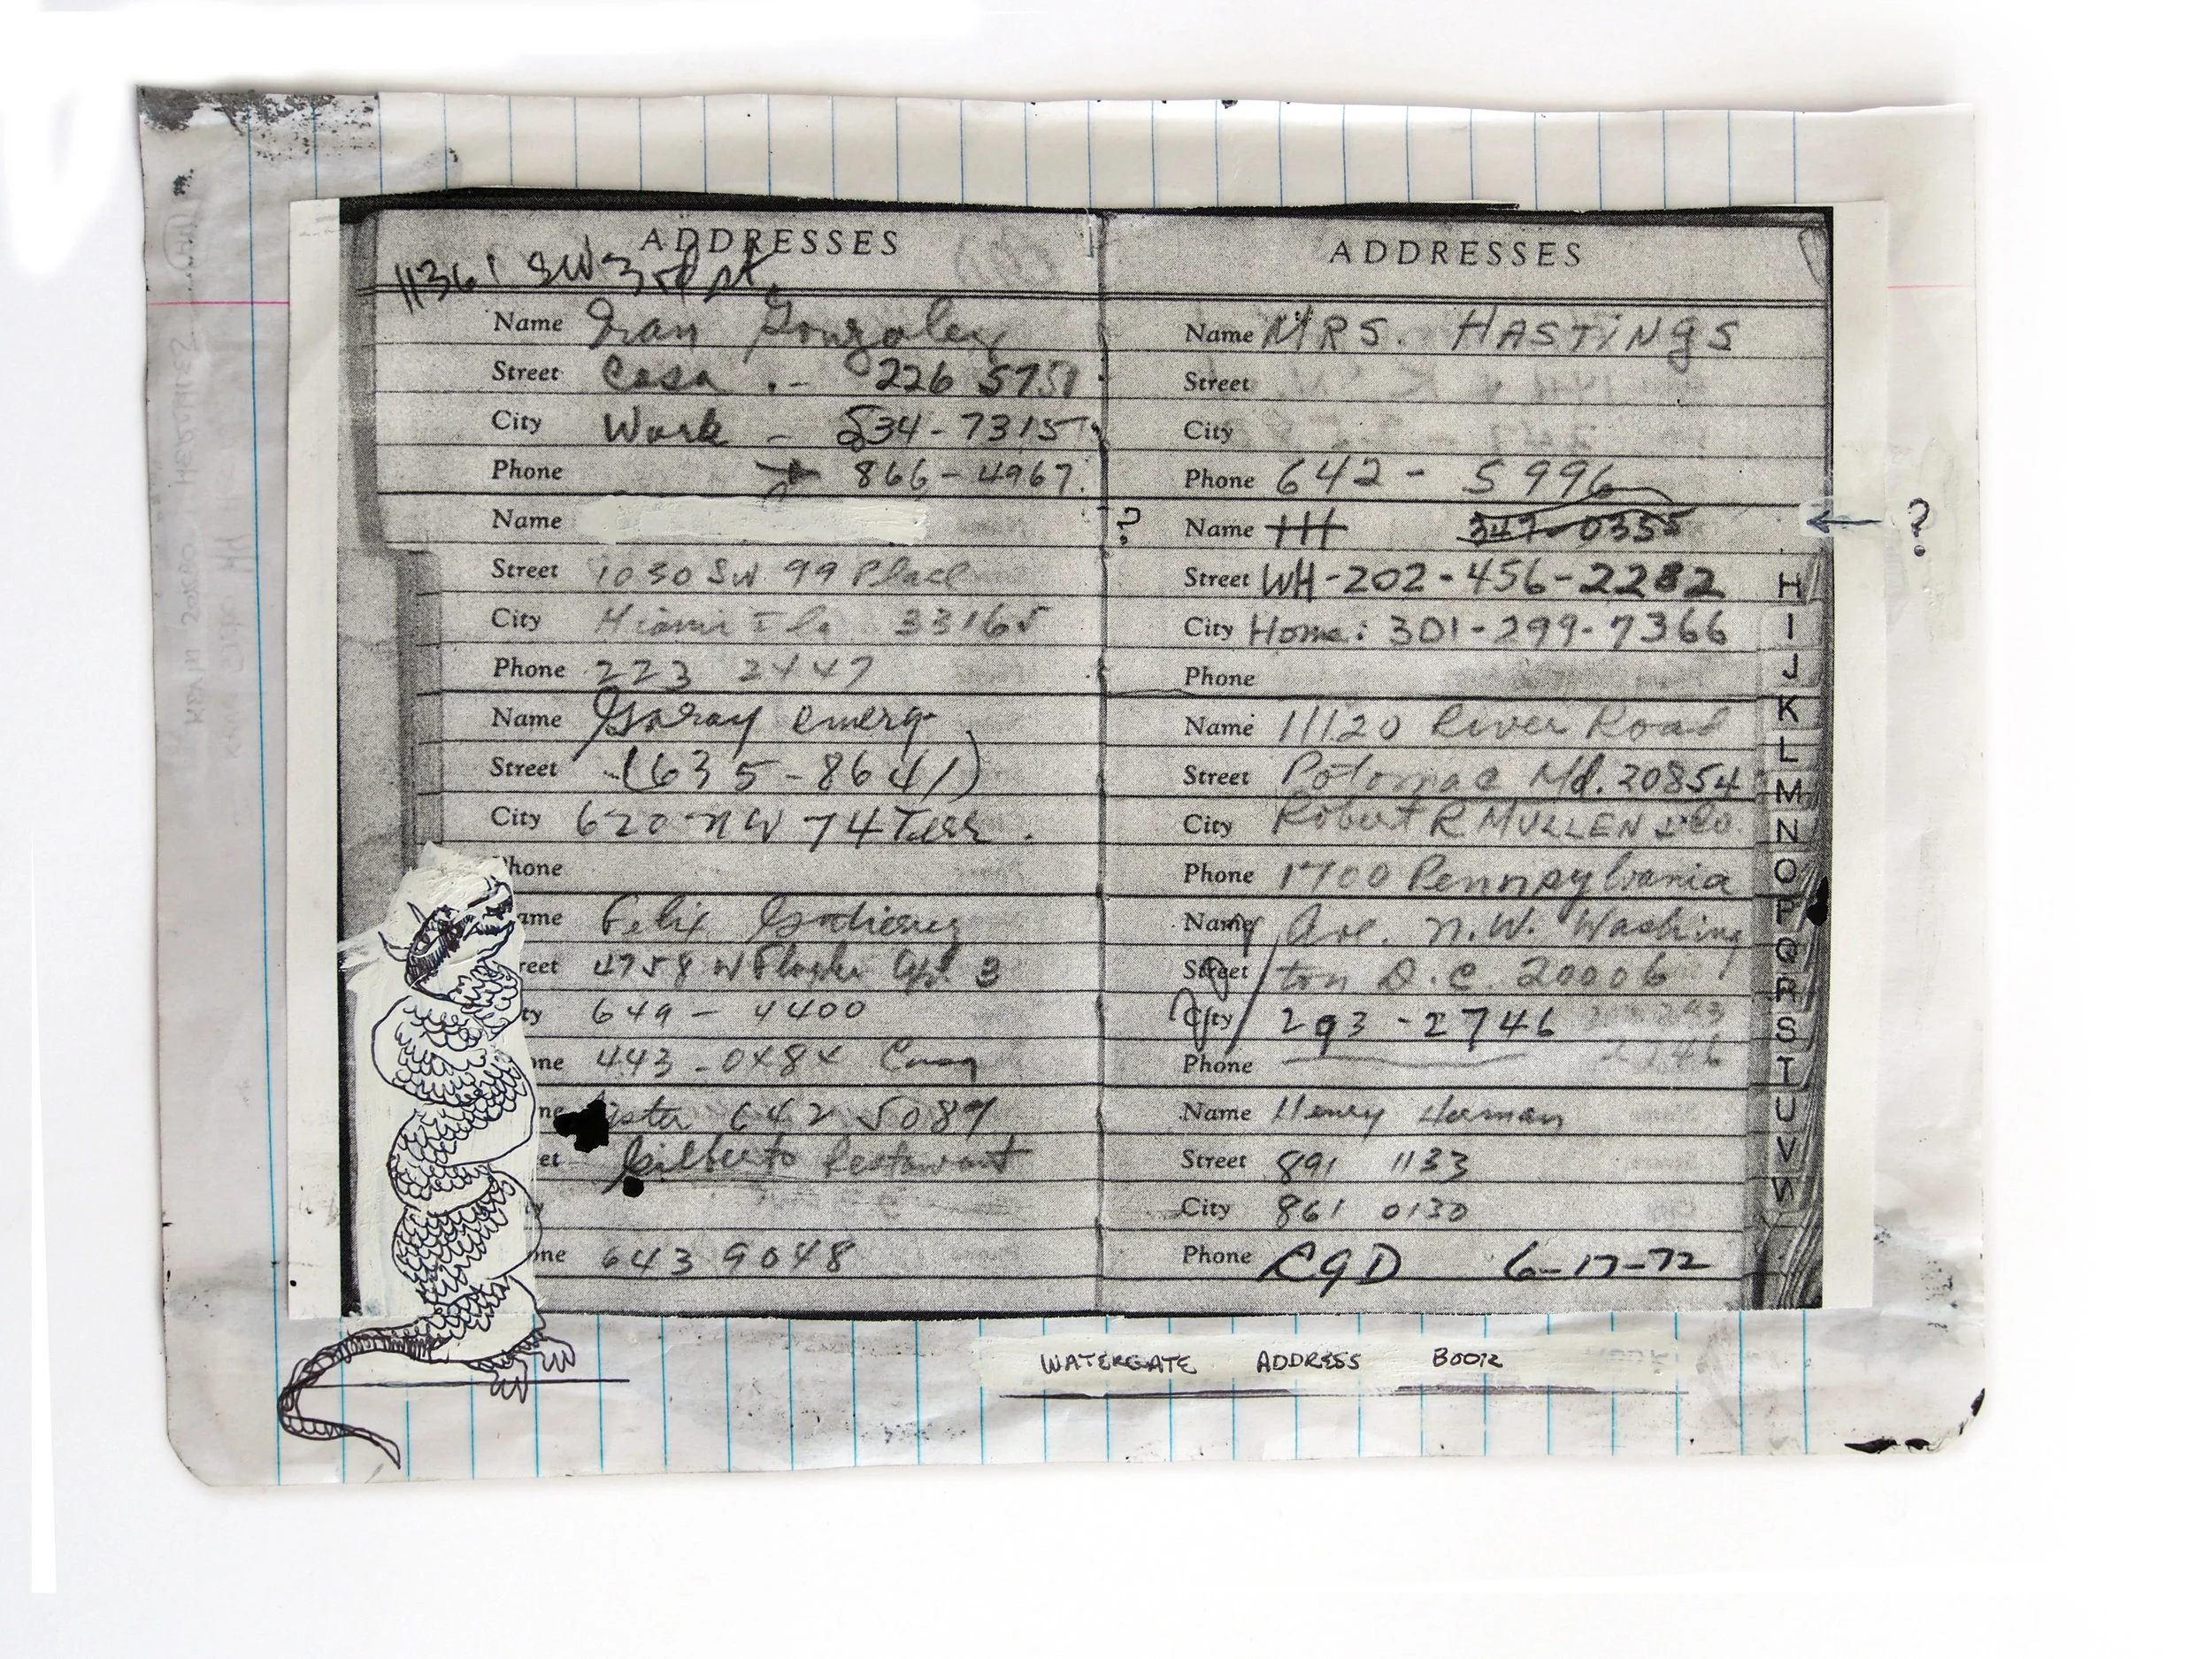 ADDRESSES
11361 SW 3rd
Name Gonzalez
Street Casa .- 226 5751
City Work - 534-7315
Phone → 866-4967
Name
Street 1030 SW 99 Place
City Miami Fla 33165
Phone 223 2447
Name Garay emerg.
Street (635-8641)
City 620 NW 74 Terr.
Phone
ame Felix
reet 4758 W Flagler Apt 3
ty 649-4400
ne 443-0484
642 5089
et Gilberto Restaurant
y
one 643 9048
ADDRESSES
Name MRS. HASTINGS
Street
City
Phone 642-5996
? Name HH 347-0355 ← ?
Street WH-202-456-2282
City Home: 301-299-7366
Phone
Name 11120 River Road
Street Potomac Md. 20854
City Robert R MULLEN & Co.
Phone 1700 Pennsylvania
Name Ave. N.W. Washing
Street ton D.C. 20006
City 293-2746
Phone
Name Henry
Street 891 1133
City 861 0130
Phone 6-17-72
H
I
J
K
L
M
N
O
P
Q
R
S
T
U
V
W
WATERGATE ADDRESS BOOK